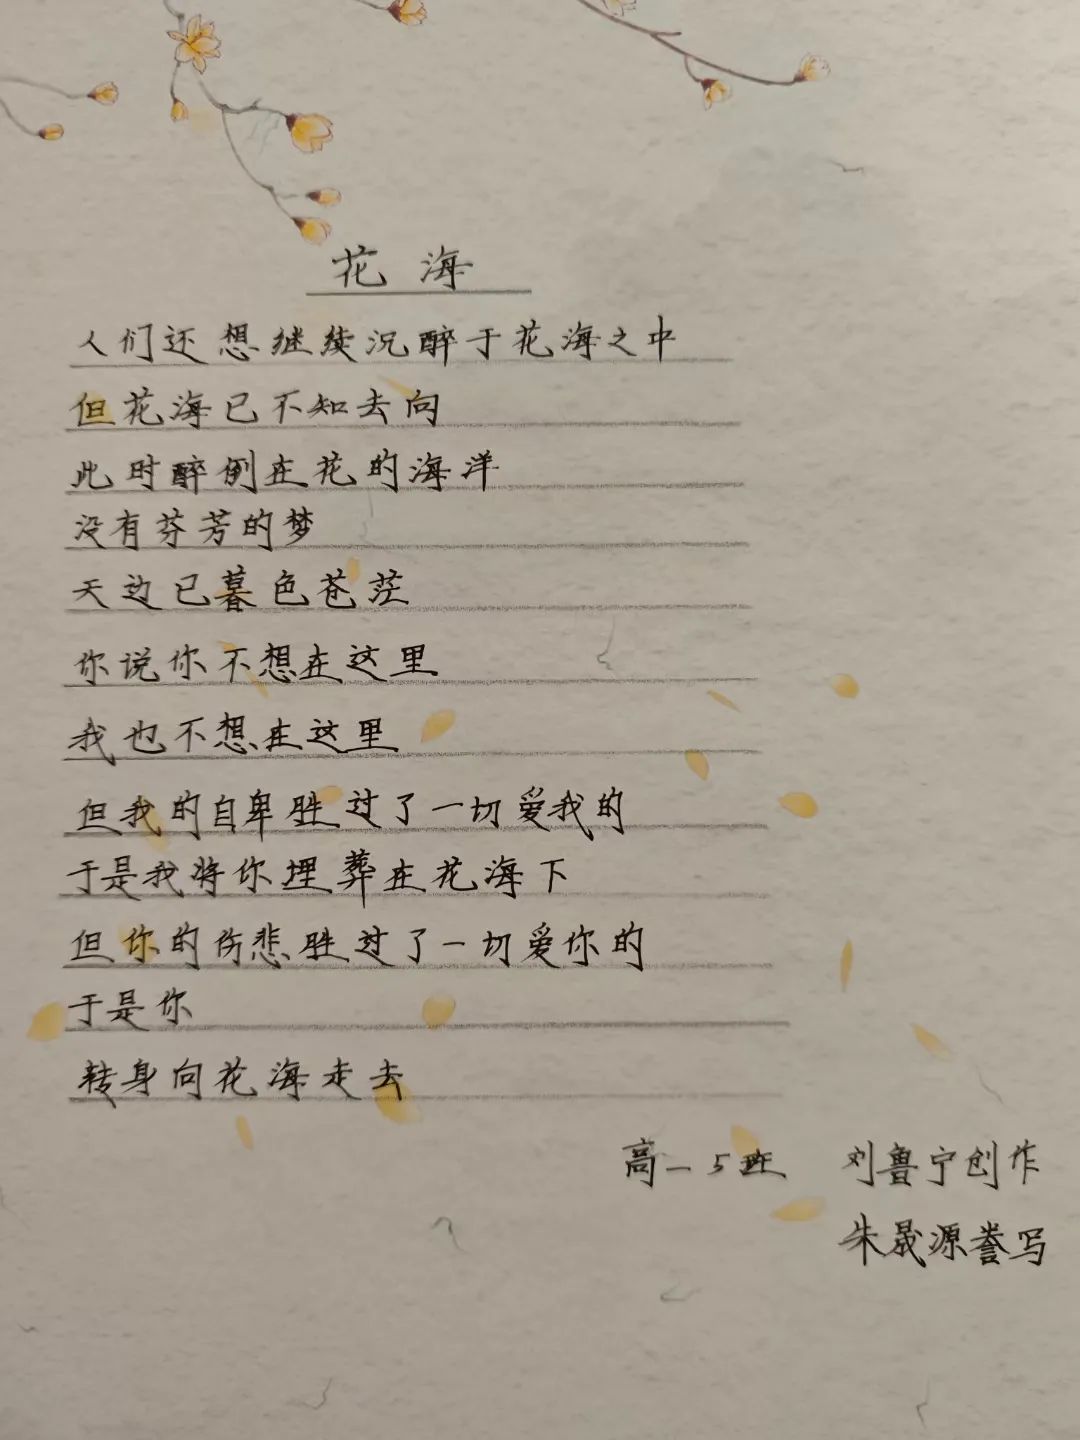 花海
人们还想继续沉醉于花海之中
但花海已不知去向
此时醉倒在花的海洋
没有芬芳的梦
天边已暮色苍茫
你说你不想在这里
我也不想在这里
但我的自卑胜过了一切爱我的
于是我将你埋葬在花海下
但你的伤悲胜过了一切爱你的
于是你
转身向花海走去
高一5班 刘鲁宁创作
朱晟源誊写